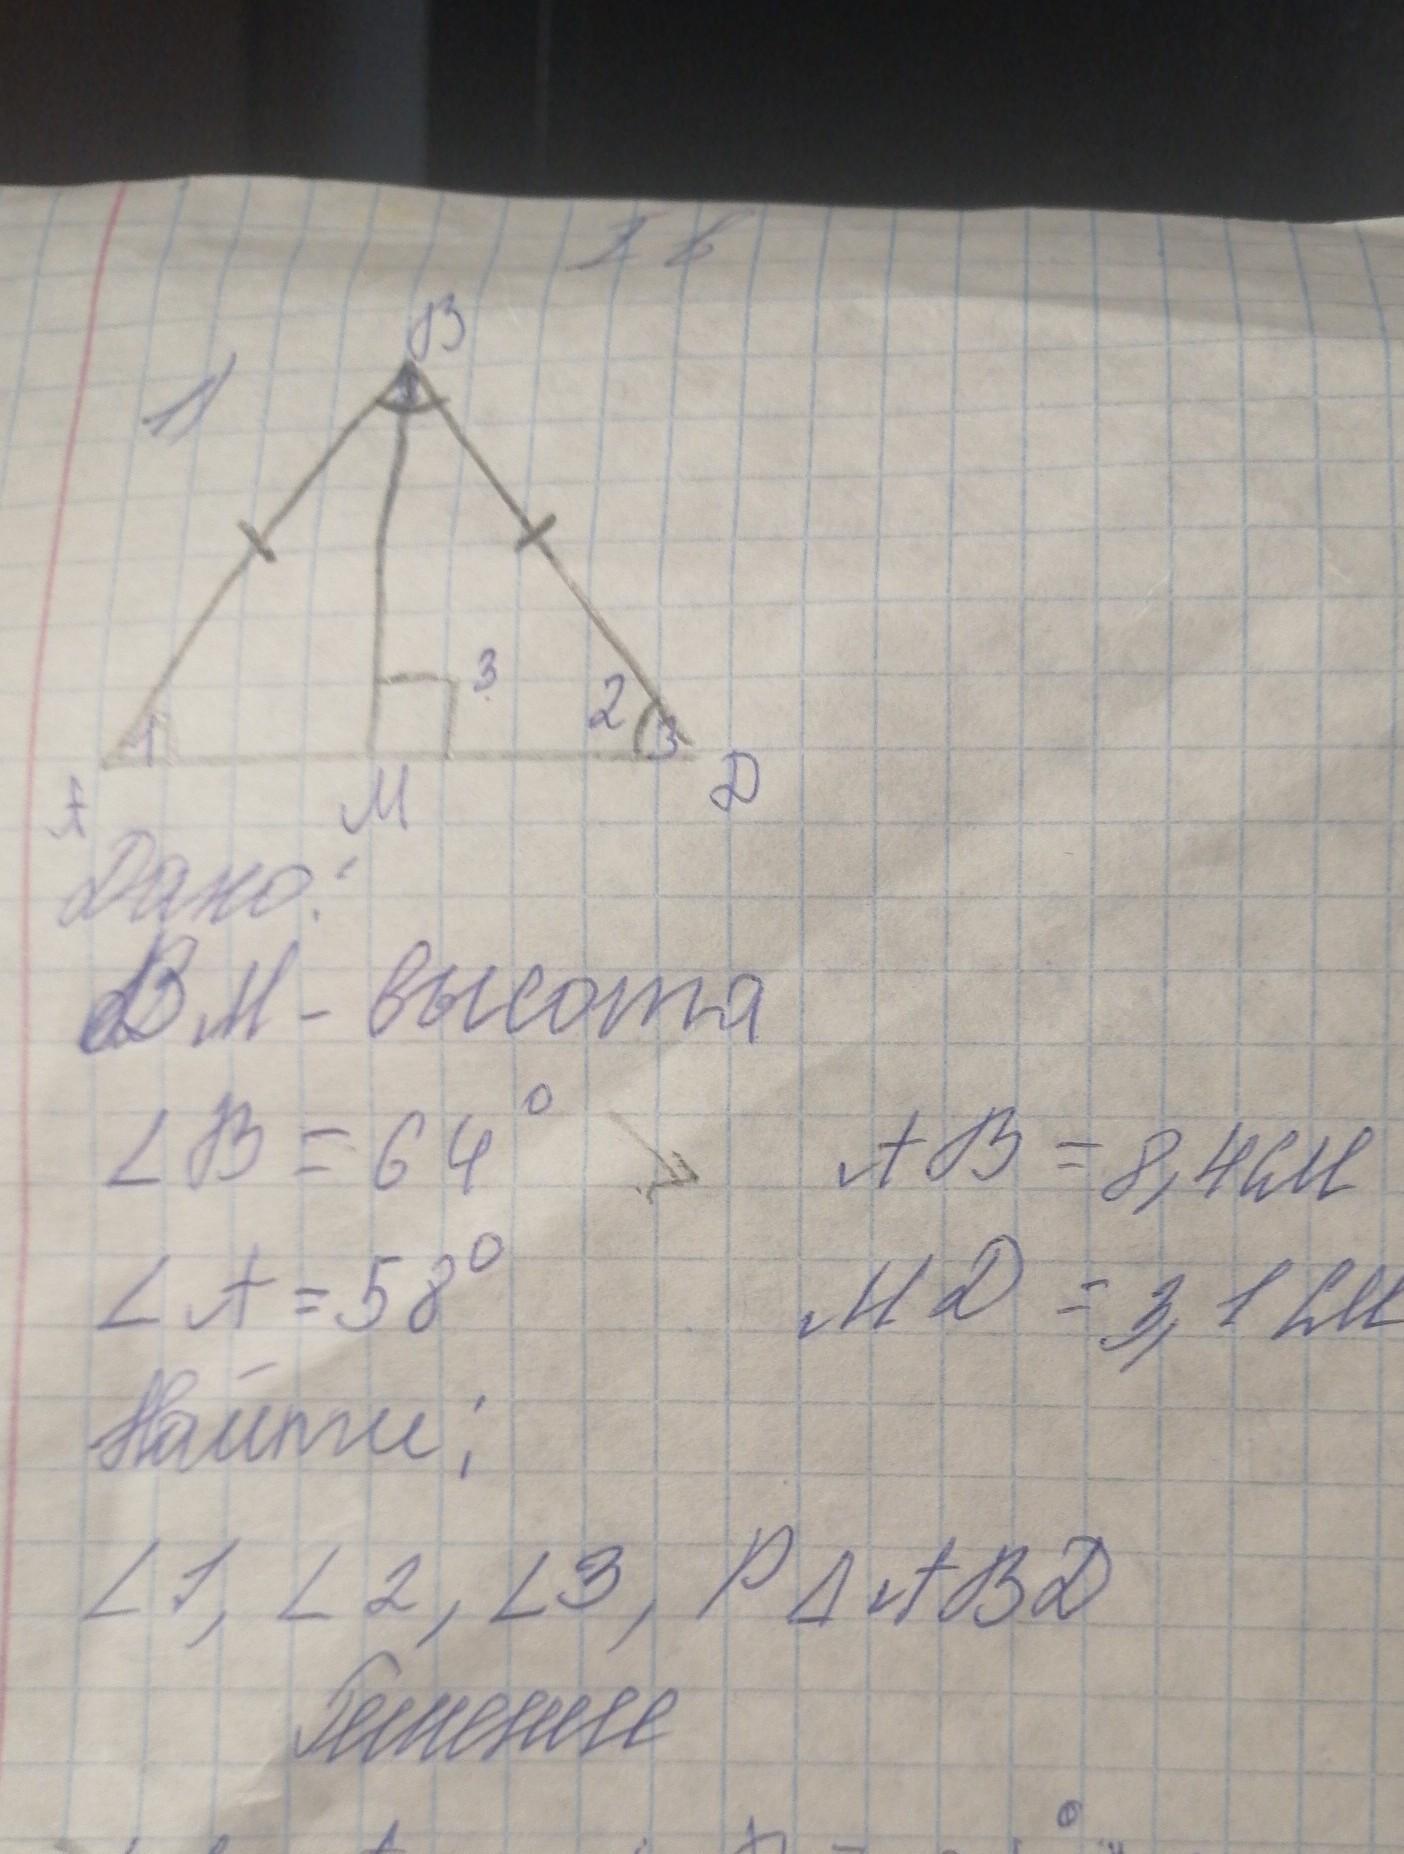 1)
B
3
2
1
3
A
M
D
Дано:
BM - высота
∠B = 64°
AB = 8,4см
∠A = 58°
MD = 3,1см
Найти:
∠1, ∠2, ∠3, P△ABD
Решение